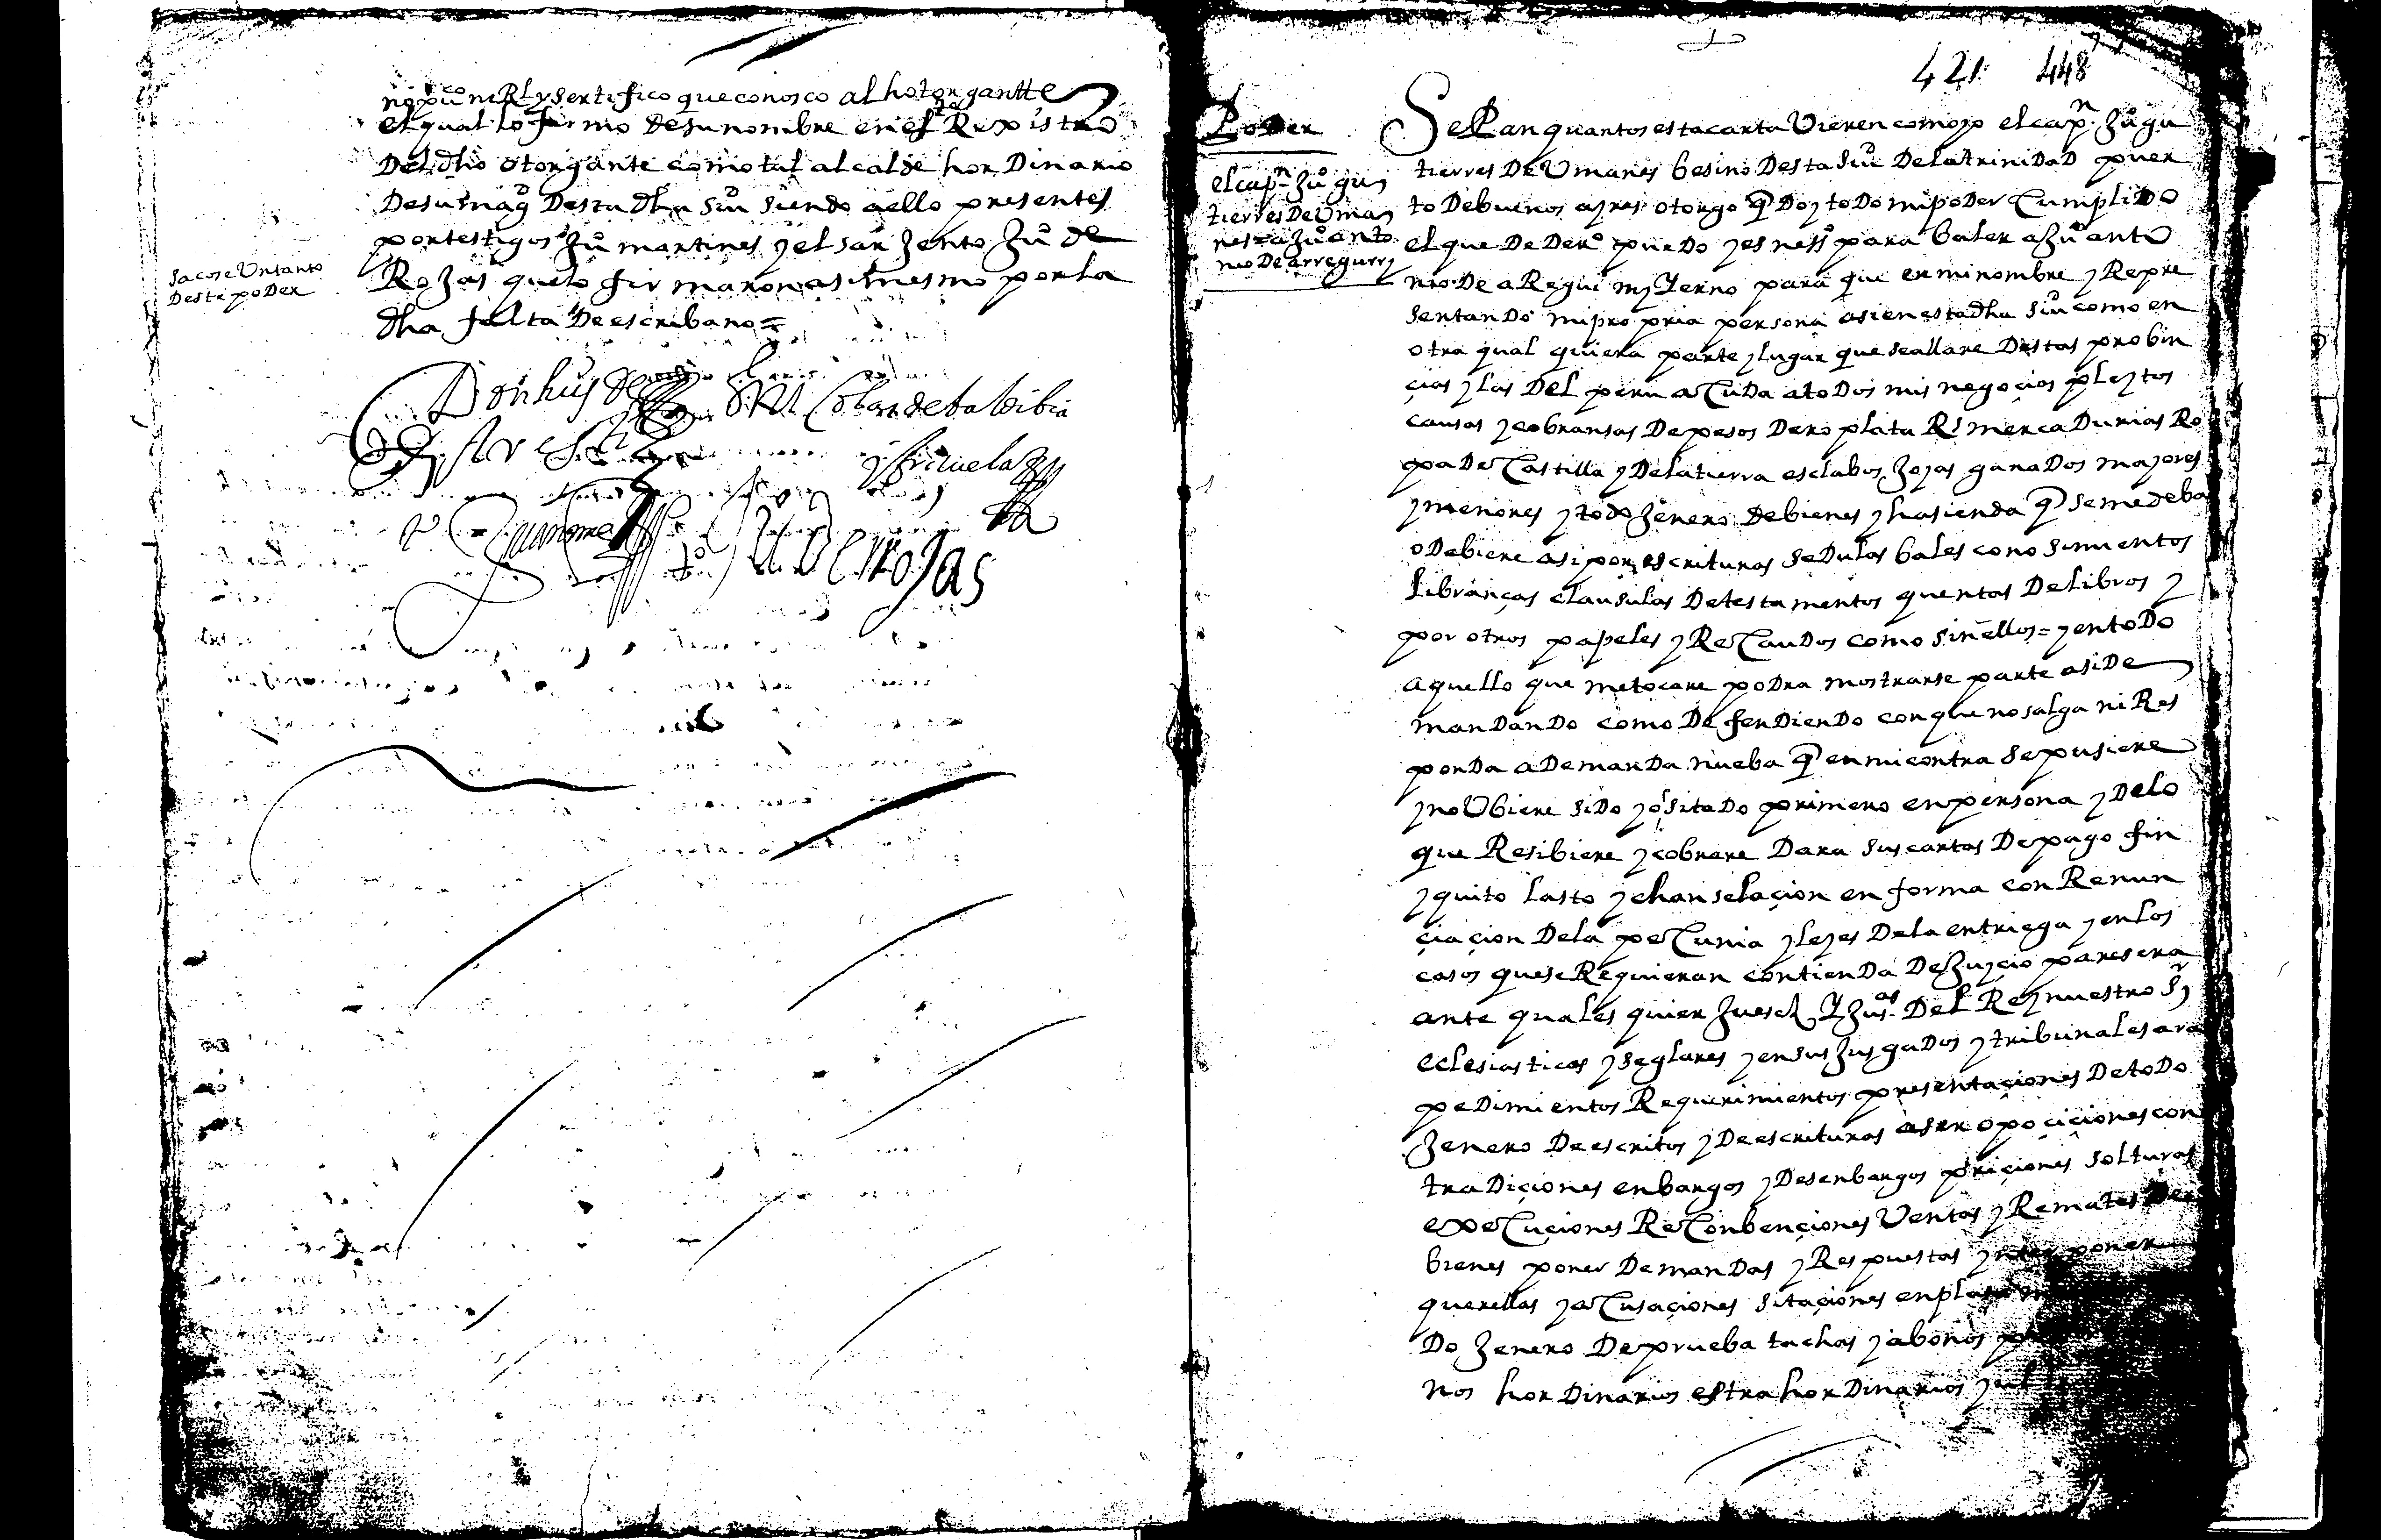 no puco ni Rl y sertifico que conosco al hotorgantte
el qual lo firmo de su nombre en este Rexistro
Del dho otorgante como tal alcalde hor Dinario
De su magd Desta dha Siud siendo a ello presentes
por testigos Juo martines y el sarJento Juo de
RoJas que lo firmaron asimesmo por la
dha falta De escribano =
Sacose Un tanto
Deste poDer
Don luys de
Aresti
y
Juan mar
Juo de RoJas
421 448
PoDer
el capn Juo gu
tierres De Uma
nes = a Juo anto
nio De arreguy
SePan quantos esta carta Vieren como yo el capn Juo gu
tierres De Umanes besino Desta Siud De la triniDaD puer
to De buenos ayres otorgo q Doy toDo mi poDer CumpliDo
el que De Dero pueDo y es nesso para baler a Juo anto
nio De aRegui my Yerno para que en mi nombre y Repre
sentanDo mi propria persona asi en esta dha Siud como en
otra qual quiera parte y lugar que se allare Destas probin
çias y las Del peru aCuDa a toDos mis negoçios pleytos
causas y cobransas De pesos De ro plata Rs mercaDurias Ro
pa De Castilla y De la tierra esclabos Joyas ganaDos mayores
y menores y toDo Jenero De bienes y hasienda q se me deba
o Debiere asi por escrituras seDulas bales conosimientos
libranças clausulas De testamentos quentas De libros y
por otros papeles y ReCauDos como sin ellos = y en toDo
aquello que me tocare poDra mostrarse parte asi De
manDanDo como DefenDienDo con que no salga ni Res
ponDa a DemanDa nueba q en mi contra se pusiere
y no Ubiere siDo yo sitaDo primero en persona y De lo
que Resibiere y cobrare Dara sus cartas De pago fin
y quito lasto y chanselaçion en forma con Renun
çiaçion De la peCunia y leyes De la entriega y en los
casos que se Requieran contienDa De Juyçio paresera
ante quales quier Jueses Y Jusas Del Rey nuestro Sr
eclesiasticos y seglares y en sus JusgaDos y tribunales ara
peDimientos Requerimientos presentaçiones De toDo
Jenero De escritos y De escrituras aser opoçiçiones con
traDiçiones enbargos y Desenbargos priçiones solturas
exeCuçiones ReConbençiones Ventas y Remates De
bienes poner DemanDas y Respuestas ynterponer
querellas y aCusaçiones sitaçiones
Do Jenero De prueba tachas y abonos
nos horDinarios estrahorDinarios